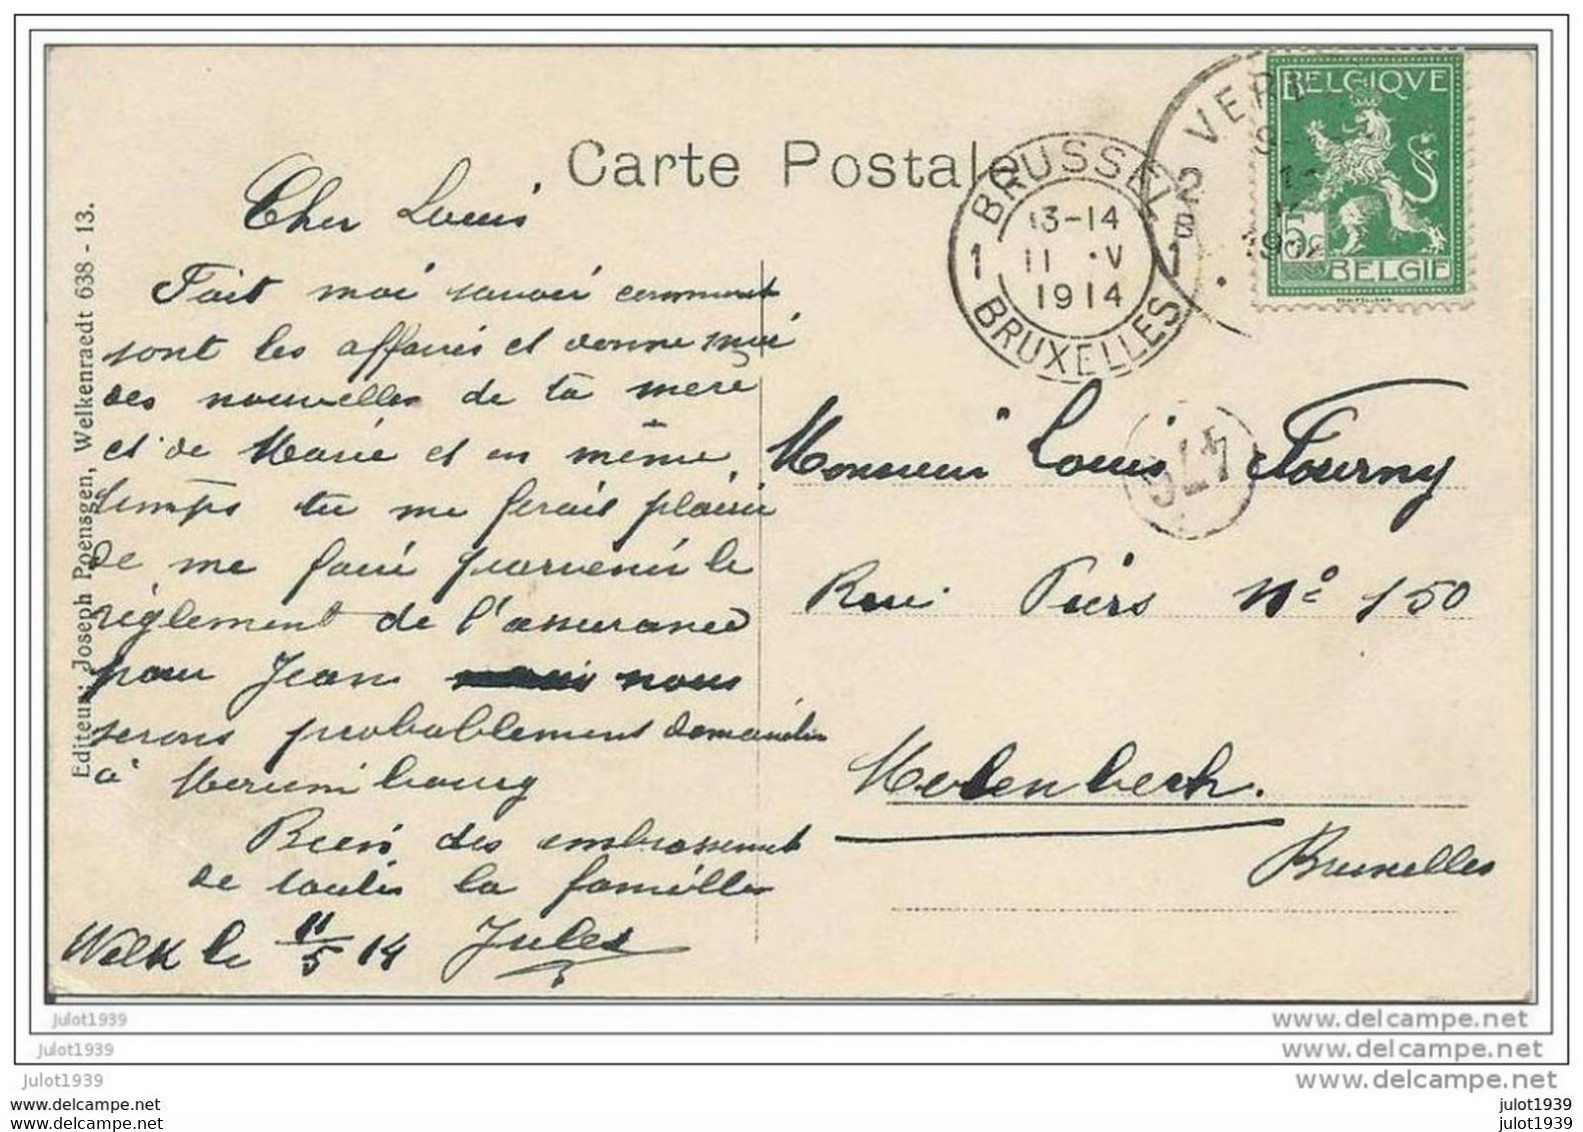 Carte Postale
BRUSSEL
1 13-14 1
11 V
1914
BRUXELLES
VER
2
B
BELGIQUE
5
BELGIE
Editeur: Joseph Poensgen, Welkenraedt 638 - 13.
Cher Louis
Fait moi savoir comment
sont les affaires et donne moi
des nouvelles de ta mère
et de Marie et en même
temps tu me ferais plaisir
de me faire parvenir le
règlement de l'assurance
pour Jean nous
serons probablement demandés
à
Bien des embrassement
de toutes la familles
Welk le 11/5 14 Jules
Monsieur Louis Fourny
Rue Piers N° 150
Molenbeek.
Bruxelles
julot1939
julot1939
julot1939
www.delcampe.net
www.delcampe.net
www.delcampe.net
www.delcampe.net
www.delcampe.net
julot1939
julot1939